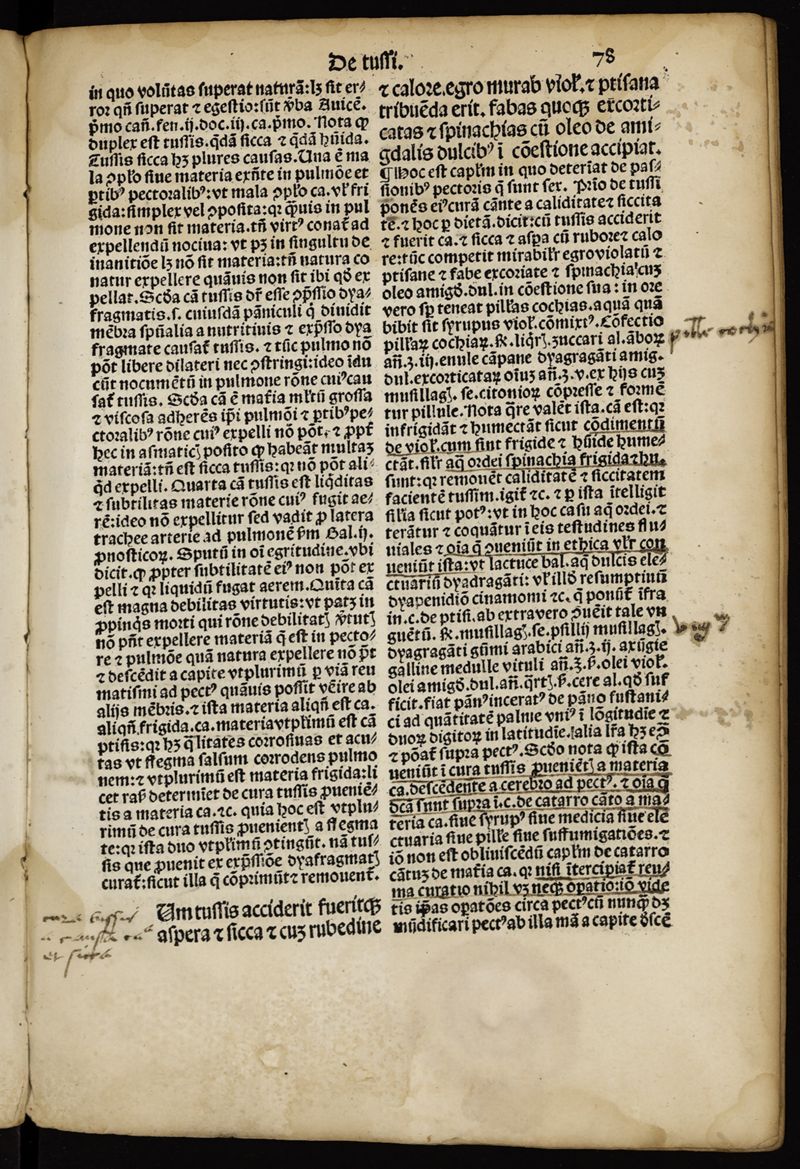 De tussi. 78
in quo volūtas superat naturā: lꝫ sit er⸗
ror qñ superat ⁊ egestio: sūt v̓ba Auicē.
p̄mo cañ. fen. ij. doc. iij. ca. p̄mo. Nota ꝙ
duplex est tussis. q̄dā sicca ⁊ q̄dā hūida.
Tussis sicca hꝫ plures causas. Una ē ma
la ꝯpl̓o siue materia exn̄te in pulmōe et
ptibꝰ pectoralibꝰ: vt mala ꝯpl̓o ca. vl̓ fri
gida: simplex vel ꝯposita: qꝛ q̄uis in pul
mone non sit materia. tñ virtꝰ conat̄ ad
expellendū nociua: vt pꝫ in singultu de
inanitiōe lꝫ nō sit materia: tñ natura co
natur expellere quāuis non sit ibi qd̓ ex
pellat. Scd̓a cā tussis dr̄ esse ꝯp̄ssio dya⸗
fragmatis. s. cuiusdā pāniculi q̓ diuidit
mēbra spūalia a nutritiuis ⁊ exp̄sso dya
fragmate causat̄ tussis. ⁊ tūc pulmo nō
pōt libere dilateri nec ꝯstringi: ideo idu
cūt nocumētū in pulmone rōne cuiꝰ cau
sat̄ tussis. Scd̓a cā ē mat̓ia ml̓tū grossa
⁊ viscosa adherēs ip̄i pulmōi ⁊ ptibꝰ pe⸗
ctoralibꝰ rōne cuiꝰ expelli nō pōt, ⁊ ꝓpt̄
hec in asmaticꝭ posito ꝙ habeāt multaꝫ
materiā: tñ est sicca tussis: qꝛ nō pōt ali⸗
q̄d expelli. Quarta cā tussis est liq̄ditas
⁊ subtilitas materie rōne cuiꝰ fugit ae⸗
rē: ideo nō expellitur sed vadit ꝓ latera
trachee arterie ad pulmonē ẜm Gal. ij.
ꝓnosticoꝝ. Sputū in oī egritudine. vbi
dicit. ꝙ ꝓpter subtilitatē eiꝰ non pōt ex
pelli ⁊ qꝛ liquidū fugat aerem. Quīta cā
est magna debilitas virtutis: vt patꝫ in
ꝓpinq̄s morti qui rōne debilitatꝭ v̓tutꝭ
nō pn̄t expellere materiā q̄ est in pecto⸗
re ⁊ pulmōe quā natura expellere nō pōt
⁊ descēdit a capite vtplurimū ꝑ viā reu
matismi ad pectꝰ quāuis possit vēire ab
alijs mēbris. ⁊ ista materia aliqñ est ca.
aliqñ frigida. ca. materia vtpl̓imū est cā
ptisis: qꝛ hꝫ q̄litates corrosiuas et acu⸗
tas vt flegma salsum corrodens pulmo
nem: ⁊ vtplurimū est materia frigida: li
cet rap̄ determiet de cura tussis ꝓueniē⸗
tis a materia ca. ⁊c. quia hoc est vtplu⸗
rimū de cura tussis ꝓuenientꝭ a flegma
te: qꝛ ista duo vtpl̓imū ꝯtingūt. nā tus⸗
sis que ꝓuenit ex exp̄ssiōe dyafragmatꝭ
curat̄: sicut illa q̄ cōprimūt ⁊ remouent̄.
Um tussis acciderit fueritqꝫ
aspera ⁊ sicca ⁊ cuꝫ rubedine
⁊ calore. egro murab viol̓. ⁊ ptisana
tribuēda erit. fabas quoqꝫ excorti⸗
catas ⁊ spinachias cū oleo de ami⸗
gdalis dulcibꝰ ī cōestione accipiat.
¶ Hoc est capl̓m in quo determat̄ de pas⸗
sionibꝰ pectoris q̄ sunt sex. Prīo de tussi
ponēs eiꝰ curā cānte a caliditate ⁊ siccita
te. ⁊ hoc ꝑ dietā. dicit: cū tussis acciderit
⁊ fuerit ca. ⁊ sicca ⁊ aspa cū rubore ⁊ calo
re: tūc competit mirabil̓r egro violatū ⁊
ptisane ⁊ fabe excoriate ⁊ spinachia: cuꝫ
oleo amigd̓. dul. in cōestione sua: in ore
vero sp̄ teneat pill̓as cochias. aquā quā
bibit sit syrupus viol̓. cōmixtꝰ. Cōfectio
pill̓aꝝ cochiaꝝ. ℞. liq̄rꝭ. zuccari al. āboꝝ
añ. ʒ. iij. enule cāpane dyagragāti amig.
dul. excorticataꝝ oīuꝫ añ. ʒ. v. ex hijs cuꝫ
musillagꝭ. se. citonioꝝ cōpresse ⁊ formē
tur pillule. Nota q̄re valēt ista. cā est: qꝛ
infrigidāt ⁊ humectāt sicut cōdimentū
de viol̓. cum sint frigide ⁊ hūide hume⸗
ctāt. sil̓r aq̄ ordei spinachia frigida ⁊ hu.
sunt: qꝛ remouēt caliditatē ⁊ siccitatem
facientē tussim. igit̄ ⁊c. ⁊ ꝑ ista ītelligit
sil̓ia sicut potꝰ: vt in hoc casu aq̄ ordei. ⁊
terātur ⁊ coquātur ī eis testudines flu⸗
uiales ⁊ oīa q̄ ꝯueniūt in ethica vl̓r con
ueniūt ista: vt lactuce bal. aq̄ dulcis ele⸗
ctuariū dyadragāti: vl̓ illd̓ resumptiuū
dyapenidiō cinamomi ⁊c. q̄ ponūt̄ īfra
in. c. de ptisi. ab extra vero ꝯuēit tale vn
guētū. ℞. musillagꝭ. se. psillij musillagꝭ.
dyagragāti gūmi arabici añ. ʒ. ij. axūgie
galline medulle vituli añ. ʒ. ß. olei viol̓.
olei amigd̓. dul. añ. q̄rtꝭ. ß. cere al. qd̓ suf
ficit. fiat pānꝰ incerat̄ꝰ de pāno fustani⸗
ci ad quātitatē palme vniꝰ ī lōgitudīe ⁊
duoꝝ digitoꝝ in latitudīe. (alia lr̄a hꝫ ecō
⁊ pōat̄ supra pectꝰ. Scd̓o nota ꝙ ista cō
ueniūt ī cura tussis ꝓueniētꝭ a materia
ca. descēdente a cerebro ad pectꝰ. ⁊ oīa q̄
dcā sunt supra ī. c. de catarro cāto a ma⸗
teria ca. siue syrupꝰ siue medicia siue ele
ctuaria siue pill̓e siue suffumigatiōes. ⁊
iō non est obliuiscēdū capl̓m de catarro
cātuꝫ de mat̓ia ca. qꝛ nisi ītercipiat̄ reu⸗
ma curatio nihil vꝫ neqꝫ opatio: iō vide
tis ip̄as opatōes circa pectꝰ cū nunq̄ dꝫ
mūdificari pectꝰ ab illa mā a capite dscē